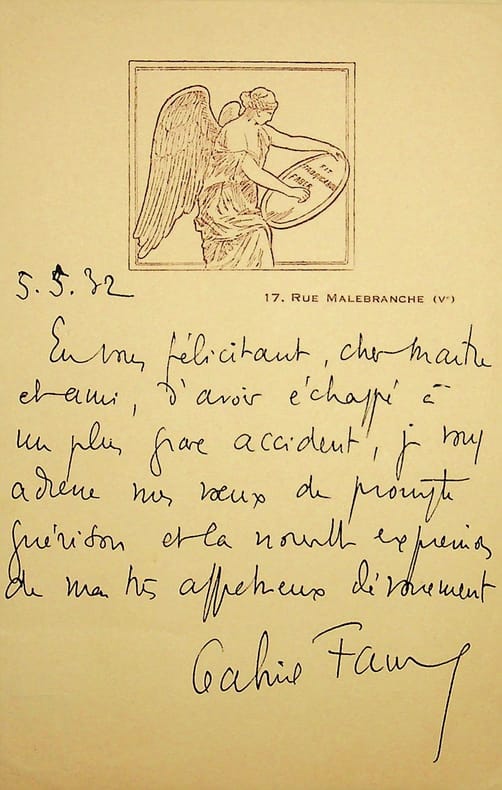 FIT
FABRICANDO
FABER
5.5.32
17. RUE MALEBRANCHE (Vᵉ)
En vous félicitant, cher maître
et ami, d'avoir échappé à
un plus grave accident, je vous
adresse mes vœux de prompte
guérison et la nouvelle expression
de ma très affectueux dévouement
Gabriel Faure